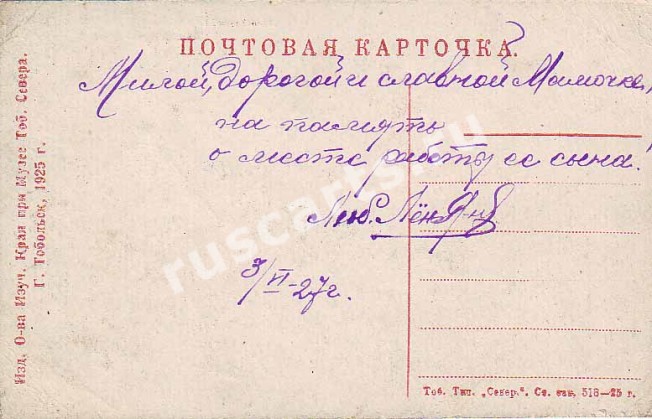 ПОЧТОВАЯ КАРТОЧКА.
Милой, дорогой и славной Мамочке,
на память
о месте работы ее сына!
Люб. Лён
3/VI-27г.
Изд. О-ва Изуч. Края при Музее Тоб. Севера.
Г. Тобольск, 1925 г.
Тоб. Тип. „Север.“ Св. зак. 518—25 г.
ruscarts.ru